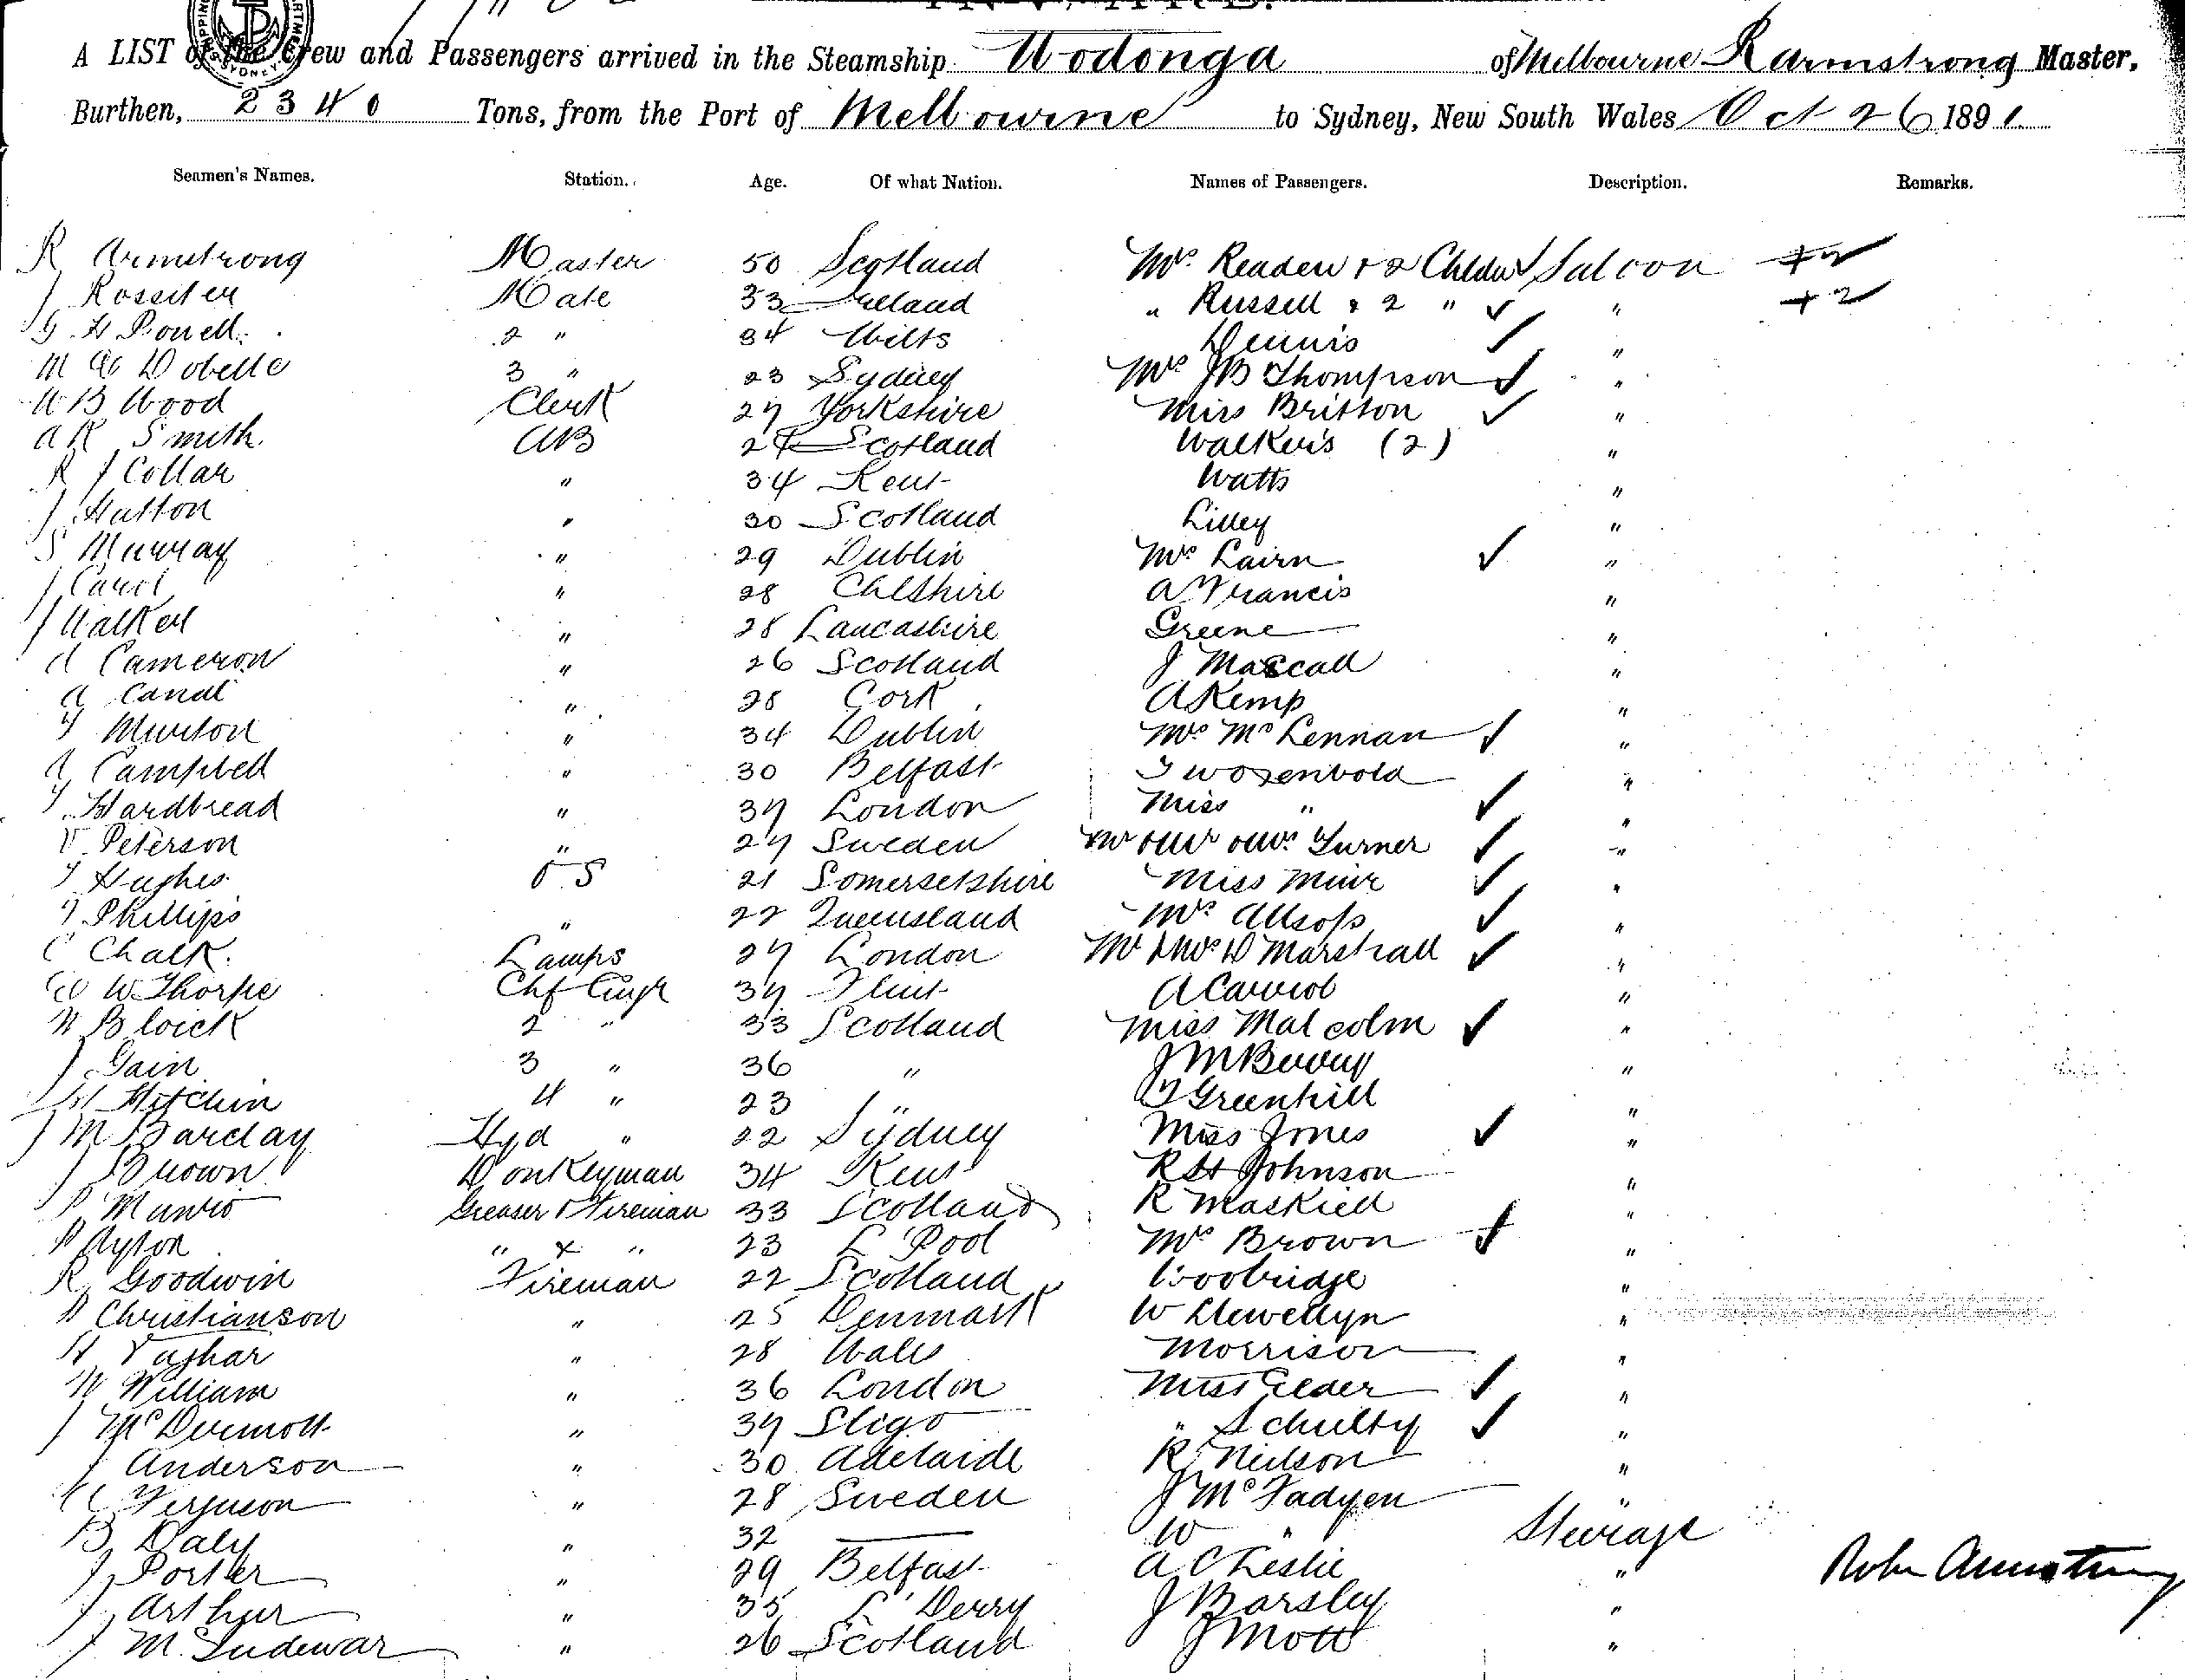 A LIST of the Crew and Passengers arrived in the Steamship Wodonga of Melbourne R Armstrong Master,
Burthen, 2340 Tons, from the Port of Melbourne to Sydney, New South Wales Oct 26 1891
Seamen's Names. Station. Age. Of what Nation. Names of Passengers. Description. Remarks.
R Armstrong Master 50 Scotland Mrs Readen + 2 Saloon + 2
J Rossiter Mate 33 Ireland " Russell & 2 " ✓ " + 2
G H Powell 2 " 34 Wilts Dennis ✓ "
M A Dobelle 3 " 23 Sydney Mrs JB Thompson ✓ "
W B Wood Clerk 27 Yorkshire Miss Britton ✓ "
A R Smith AB 24 Scotland Walkers (2) "
R J Collar " 34 Kent Watts "
J Hutton " 30 Scotland Lilley "
S Murray " 29 Dublin Mrs Lairn ✓ "
J " 28 Cheshire A Francis "
J Walker " 28 Lancashire Greene "
A Cameron " 26 Scotland J Mascall "
A " 28 Cork A Kemp "
" 34 Dublin Mrs McLennan ✓ "
A Campbell " 30 Belfast "
T Hardbread " 37 London Miss " ✓ "
V Peterson " 27 Sweden Turner ✓ "
T Hughes O S 21 Somersetshire Miss Muir ✓ "
T Phillips " 22 Queensland Mrs Allsop ✓ "
C Chalk Lamps 27 London Mr & Mrs D Marshall ✓ "
W Thorpe Chf Engr 37 Flint A Carrol "
W Bloick 2 " 33 Scotland Miss Malcolm ✓ "
J Gain 3 " 36 " "
W Hitchin 4 " 23 " Greenhill "
J M Barclay Hyd " 22 Sydney Miss Jones ✓ "
J Brown Donkeyman 34 Kent R H Johnson "
P Munro Greaser & Fireman 33 Scotland R Maskiell "
P Ayton " & " 23 L'Pool Mrs Brown ✓ "
R Goodwin Fireman 22 Scotland Woobridge "
P Christianson " 25 Denmark W Llewellyn "
H " 28 Wales Morrison "
W William " 36 London Miss Elder ✓ "
J McDermott " 37 Sligo " Schulty ✓ "
J Anderson " 30 Adelaide R Neilson "
C Ferguson " 28 Sweden J McFadyen "
B Daly " 32 — W " Steerage
J Porter " 29 Belfast A C Leslie "
J Arthur " 35 L'Derry J Barsley "
J M. Ludewar " 26 Scotland J Mott "
Robt Armstrong